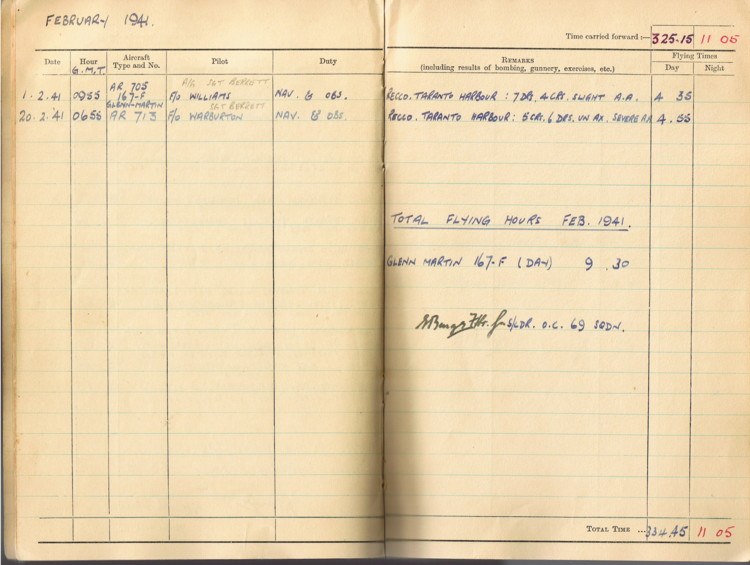 FEBRUARY 1941.
Time carried forward :— 325.15 11 05
Date Hour G.M.T. Aircraft Type and No. Pilot Duty REMARKS (including results of bombing, gunnery, exercises, etc.) Flying Times Day Night
A/G SGT BERRETT
AR 705
1.2.41 0955 167-F F/O WILLIAMS NAV. & OBS. RECCO. TARANTO HARBOUR : 7 DRS, 4 CRS. SLIGHT A.A. 4 35
GLENN-MARTIN SGT BERRETT
20.2.41 0655 AR 713 F/O WARBURTON NAV. & OBS. RECCO. TARANTO HARBOUR : 5 CRS. 6 DRS. SEVERE AA 4.55
TOTAL FLYING HOURS FEB. 1941.
GLENN MARTIN 167-F (DAY) 9.30
S/LDR. O.C. 69 SQDN.
TOTAL TIME ... 334.45 11 05